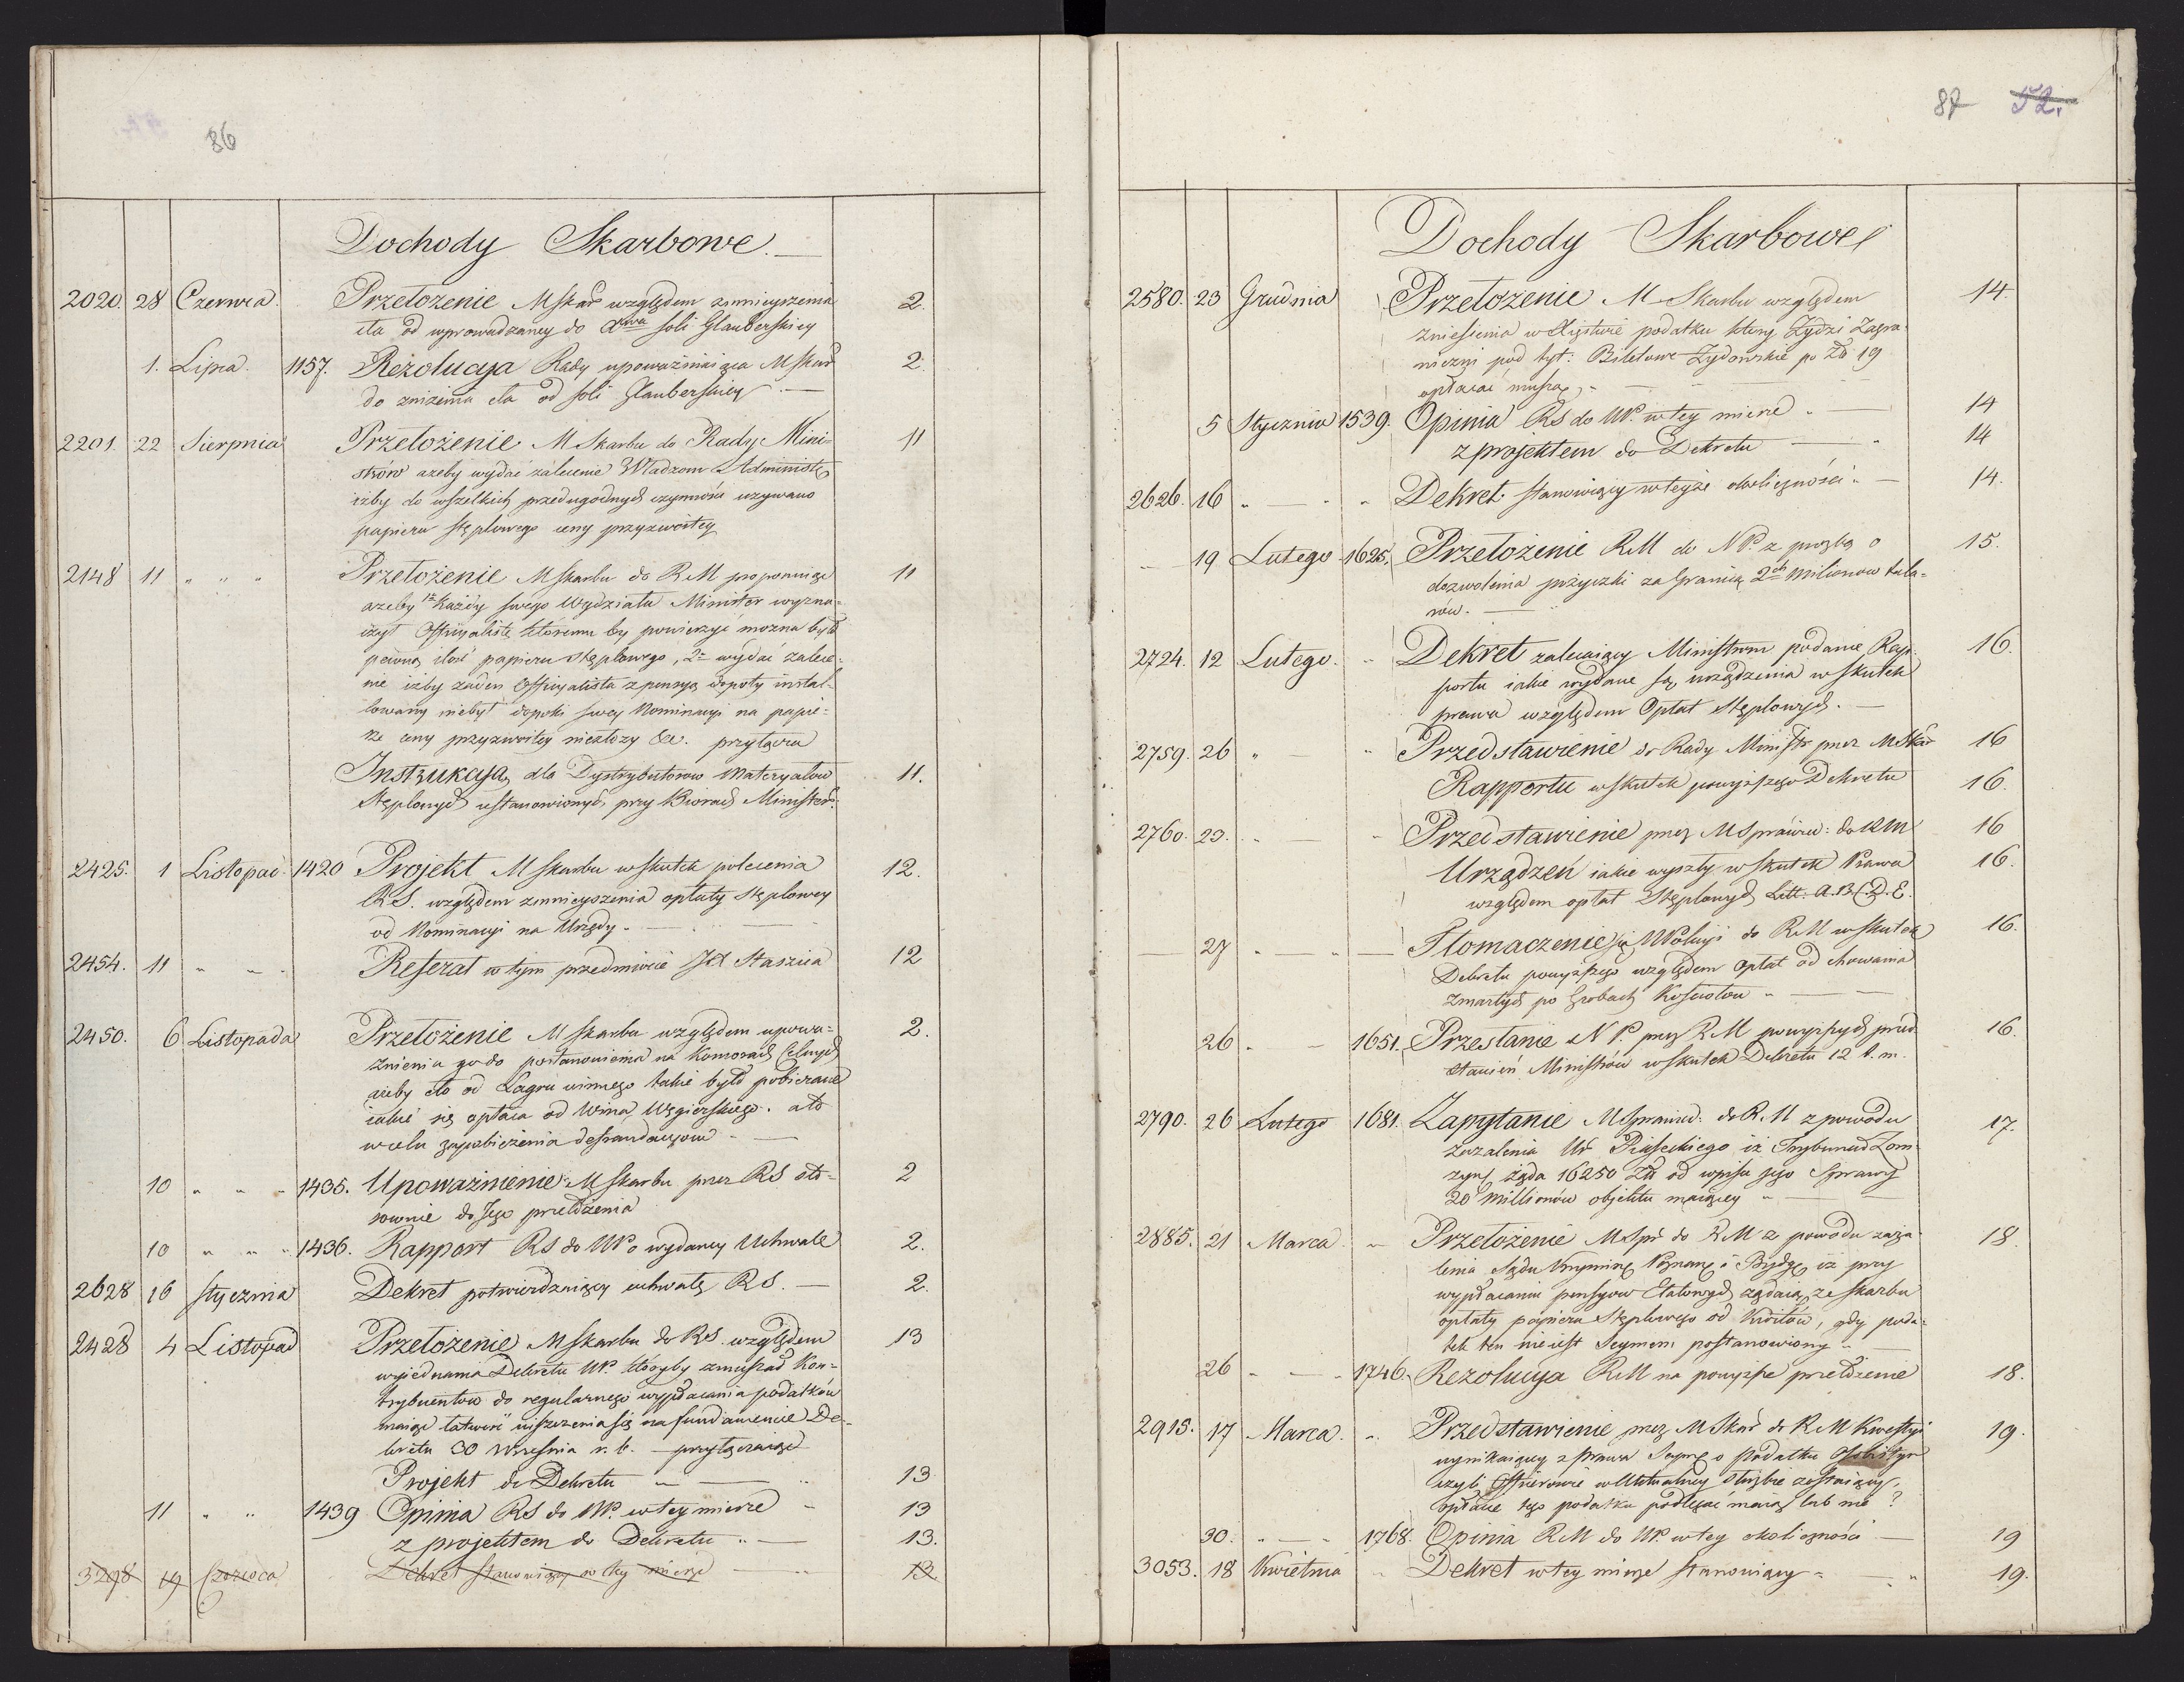 86
Dochody Skarbowe.
2020. 28 Czerwca. Przełożenie MSkar względem zmnieyszenia 2.
cła od wprowadzaney do Xwa soli Glauberskiey
1. Lipca. 1157. Rezolucya Rady upoważniaiąca MSkar 2.
do zniżenia cła od soli Glauberskiey
2201. 22 Sierpnia Przełożenie MSkarbu do Rady Mini- 11
strów ażeby wydać zalecenie Władzom Administr
iżby do wszelkich przedugodnych czynności używano
papieru stęplowego ceny przyzwoitey
2148 11 " " " Przełożenie MSkarbu do RM proponuiąc 11
ażeby 1e Każdy swego Wydziału Minister wyzna-
czył Officyalistę któremu by powierzyć można było
pewną ilość papieru stęplowego, 2e wydać zalece-
nie iżby żaden Officyalista z pensyą dopóty instal-
lowany niebył dopóki swey Nominacyi na papie-
rze ceny przyzwoitey niezłoży &c. przyłącza
Instrukcyą dla Dystrybutorow Materyałow 11.
Stęplowych ustanowionych przy Biorach Minister.
2425. 1 Listopad. 1420 Projekt MSkarbu wskutek polecenia 12.
RS. względem zmnieyszenia opłaty stęplowey
od Nominacyi na Urzędy.
2454. 11 " " " Referat w tym przedmiocie JX Staszica 12
2450. 6 Listopada Przełożenie MSkarbu względem upowa- 2.
żnienia go do postanowienia na Komorach Celnych
ażeby cło od Lagru winnego takie było pobierane
iakie się opłaca od Wina Węgierskiego. a to
w celu zapobieżenia defraudacyom
10 " " " 1435. Upoważnienie MSkarbu przez RS sto- 2
sownie do Jego przełożenia
10 " " " 1436. Rapport RS do NP o wydaney Uchwale 2.
2628 16 Stycznia Dekret potwierdzaiący uchwałę RS. 2.
2428 4 Listopad Przełożenie MSkarbu do RS. względem 13
wyiednania Dekretu NP. któryby zmuszał Kon-
trybuentów do regularnego wypłacania podatków
maiąc łatwość uiszczenia się na fundamencie De-
kretu 30 Września r. b. — przyłączaiąc
Projekt do Dekretu 13
11 " " 1439 Opinia RS do NP. w tey mierze 13
z projektem do Dekretu 13.
3298 19 Czerwca Dekret stanowiący w tey mierze 13
87 52.
Dochody Skarbowe
2580. 23 Grudnia Przełożenie M Skarbu względem 14.
zniesienia w Xięstwie podatku który Żydzi Zagra-
niczni pod tyt: Biletowe Żydowskie po Zł 19
opłacać muszą
5 Stycznia 1539. Opinia RS do NP. w tey mierze 14
z projektem do Dekretu 14
2626. 16 " Dekret stanowiący w teyże okoliczności 14.
19 Lutego 1625. Przełożenie RM do NP. z prozbą o 15.
dozwolenia pożyczki za Granicą 2ch milionow tala-
rów.
2724. 12 Lutego. Dekret zalecaiący Ministrom podanie Rap- 16.
portu iakie wydane są urządzenia wskutek
prawa względem Opłat stęplowych.
2759. 26 " Przedstawienie do Rady Ministr przez MSkar 16
Rapportu wskutek powyższego Dekretu 16.
2760. 23. " Przedstawienie przez MSprawied: do RM 16
Urządzeń iakie wyszły wskutek Prawa 16.
względem opłat Stęplowych Litt: A. B C. D. E.
27 " Tłomaczenie się MPolicyi do RM wskutek 16.
Dekretu powyższego względem opłat od chowania
zmarłych po Grobach Kościołow
26 " 1651. Przesłanie NP. przez RM powyższych przed- 16.
stawień Ministrów wskutek Dekretu 12 b. m.
2790. 26 Lutego 1681. Zapytanie MSprawied: do R.M z powodu 17.
Zażalenia Ur Piaseckiego iż Trybunał Łom-
żyn żąda 16250 Zł od wpisu jego Sprawy
20 Millionów objektu maiącey
2885. 21 Marca Przełożenie MSpr do RM z powodu zaża- 18.
lenia Sądu Krymin Poznan i Bydg iż przy
wypłacaniu pensyow Etatowych żądaią ze Skarbu
opłaty papieru Stęplowego od Kwitów, gdy poda-
tek ten nieiest Seymem postanowiony
26 " 1746. Rezolucya RM na powyższe przełożenie 18.
2915. 17 Marca. Przedstawienie przez MSkar do RM Kwestyi 19.
wynikaiącey z prawa Seym o podatku Osobistym
czyli Officerowie w Aktualney Służbie zostaiący
opłacie tego podatku podlegać maią lub nie?
30. " 1768. Opinia RM do NP. w tey okoliczności 19
3053. 18 Kwietnia Dekret w tey mierze stanowiący 19.